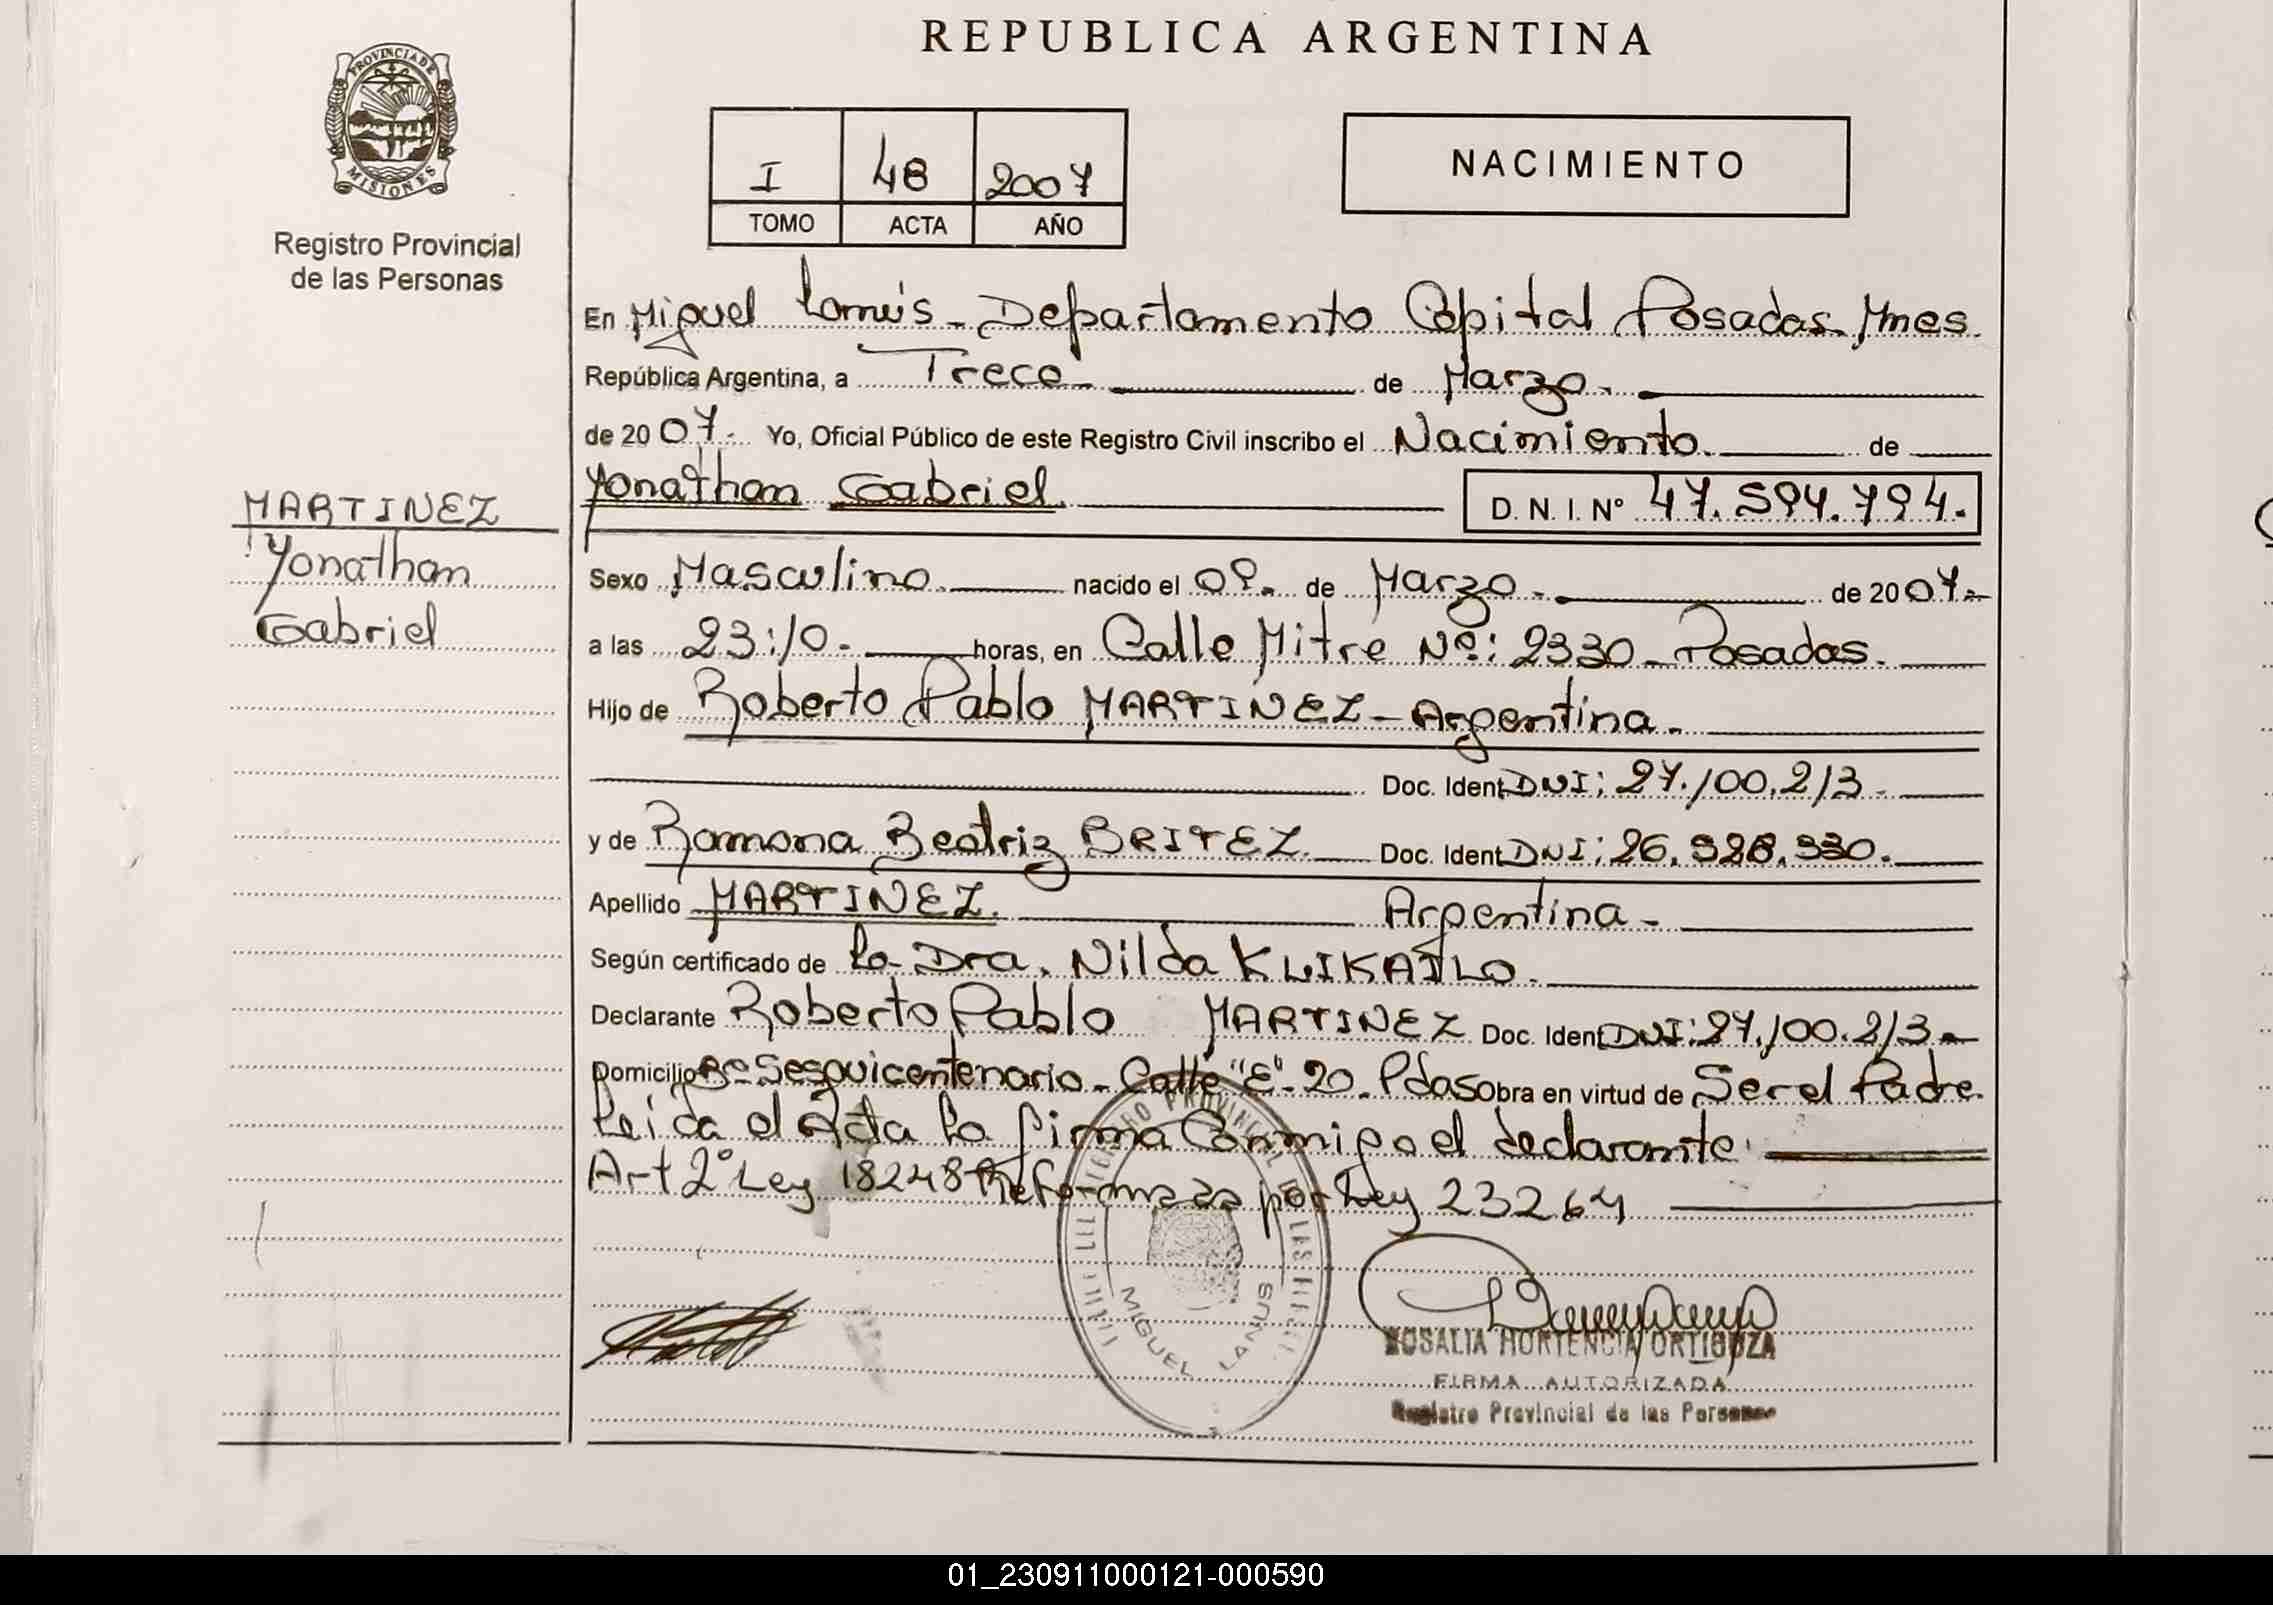 REPUBLICA ARGENTINA
PROVINCIA DE MISIONES
Registro Provincial
de las Personas
I 48 2007
TOMO ACTA AÑO
NACIMIENTO
En Miguel Lanús - Departamento Capital Posadas. Mnes.
República Argentina, a Trece de Marzo.
de 2007. Yo, Oficial Público de este Registro Civil inscribo el Nacimiento. de
Yonathan Gabriel. D. N. I. N° 47.594.794.
MARTINEZ
Yonathan
Gabriel
Sexo Masculino. nacido el 09. de Marzo. de 2007.
a las 23:10. horas, en Calle Mitre Nº: 2330 - Posadas.
Hijo de Roberto Pablo MARTINEZ - Argentina.
Doc. Ident. DNI: 27.100.213.
y de Ramona Beatriz BRITEZ. Doc. Ident. DNI: 26.328.330.
Apellido MARTINEZ. Argentina -
Según certificado de la Dra. Nilda
Declarante Roberto Pablo MARTINEZ Doc. Ident. DNI: 27.100.213.
Domicilio Bº Sesquicentenario - Calle "E" - 20. Pdas Obra en virtud de Ser el Padre.
Leida el Acta la firma Conmigo el declarante.
Art 2° Ley 18248 Reformada por Ley 23264
REGISTRO PROVINCIAL DE LAS
MIGUEL LANUS
ROSALIA HORTENCIA ORTIGOZA
FIRMA AUTORIZADA
Registro Provincial de las Personas
01_230911000121-000590